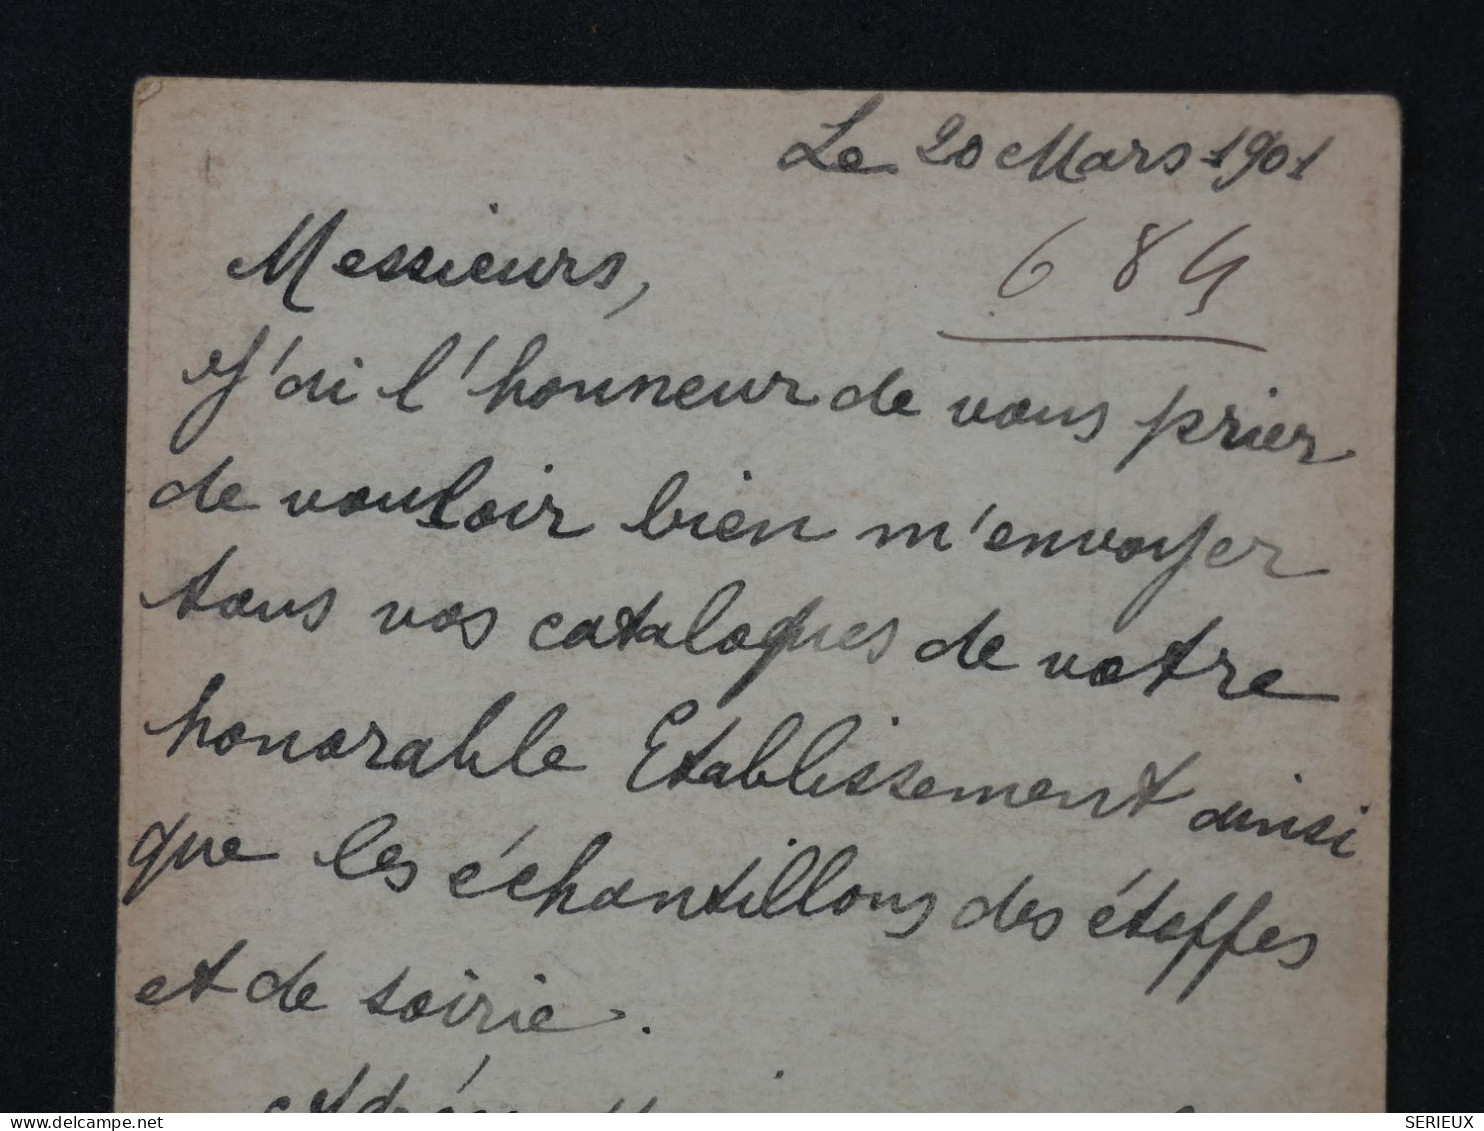 Le 20 Mars 1901
684
Messieurs,
J'ai l'honneur de vous prier
de vouloir bien m'envoyer
tous vos catalogues de votre
honorable Etablissement ainsi
que les échantillons des étoffes
et de soirie.
delcampe.net
SERIEUX